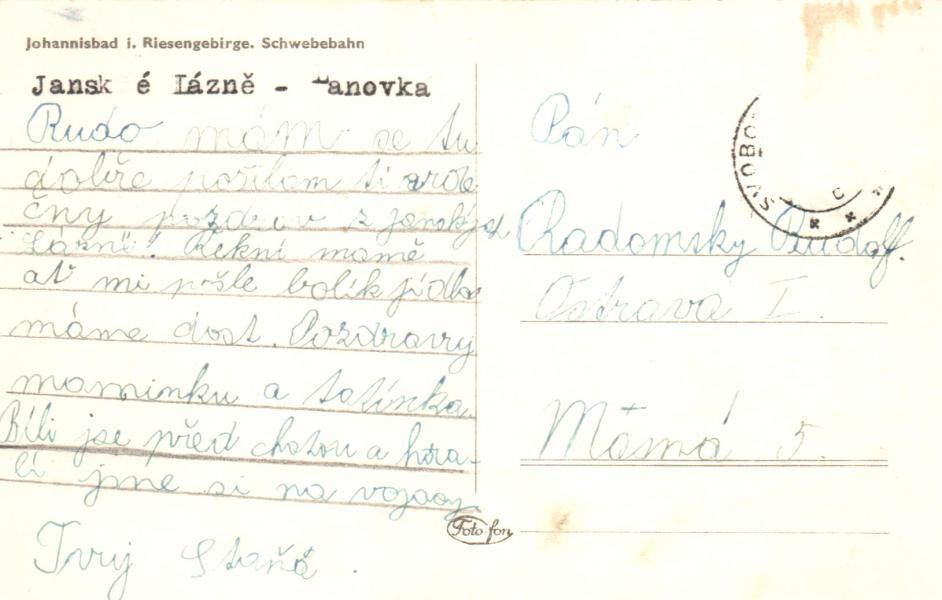 Johannisbad i. Riesengebirge. Schwebebahn
Jansk é Lázně - Hanovka
Rudo mám se tu
dobře posílam ti srde
čny pozdrav z janských
Lázně! Řekni mamě
ať mi pošle bolík jídla
máme dost. Pozdravuj
maminku a tatínka.
Bíli jse před chatou a hra-
li jsme si na vojaay.
Tvuj Staňa .
Pán
Radomsky Rudolf.
Ostrava I.
5.
SVOBO
Foto-fon